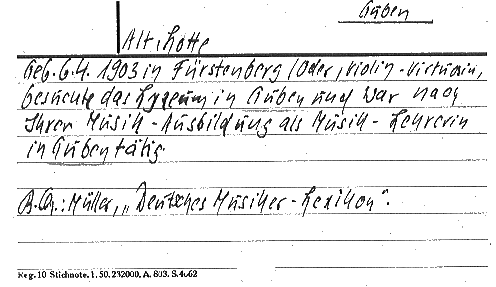 Guben
Alt, Lotte
Geb. 6.4. 1903 in Fürstenberg/Oder, Violin-Virtuosin,
besuchte das Lyzeum in Guben und war nach
Ihrer Musik-Ausbildung als Musik-Lehrerin
in Guben tätig.
B.Qu.: Müller, „Deutsches Musiker-Lexikon".
Reg. 10 Stichnote. 1. 50. 232000. A. 803. S. 4662